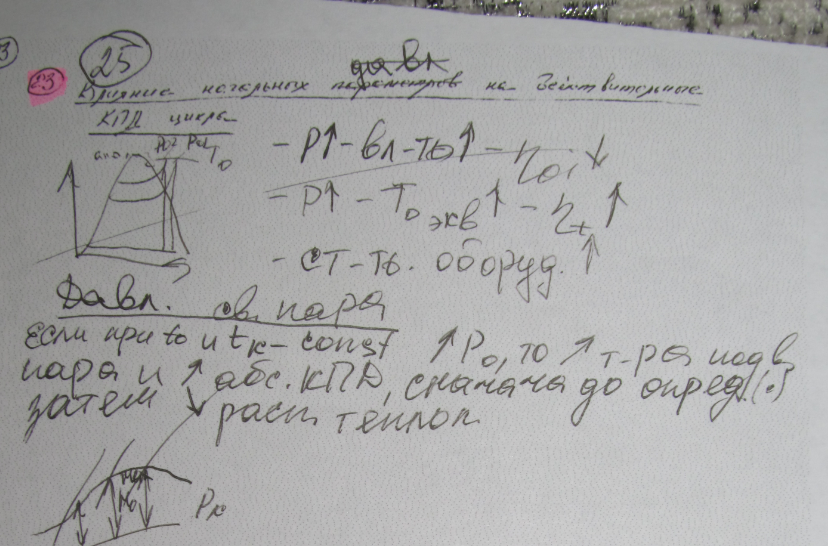 25
23 Влияние начальных параметров на действительные
КПД цикла
T₀
- P↑ - вл-ть↑ - ηoi↓
- P↑ - T₀ экв↑ - ηt↑
- ст-ть. оборуд.↑
Давл. св. пара
Если при t₀ и tк - const ↑P₀, то ↑ т-ра подв
пара и ↑ абс. КПД, сначача до опред. (·)
затем ↓ расп теплоп.
Pк